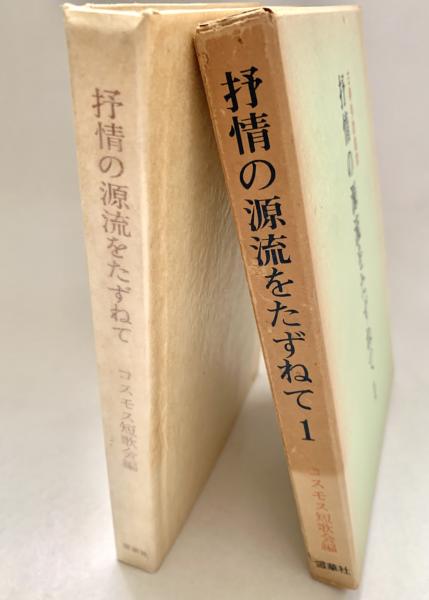 抒情の源流をたずねて
コスモス短歌会編
言華社
抒情の源流をたずねて 1
コスモス短歌会編
言華社
抒情の源流をたずねて 1